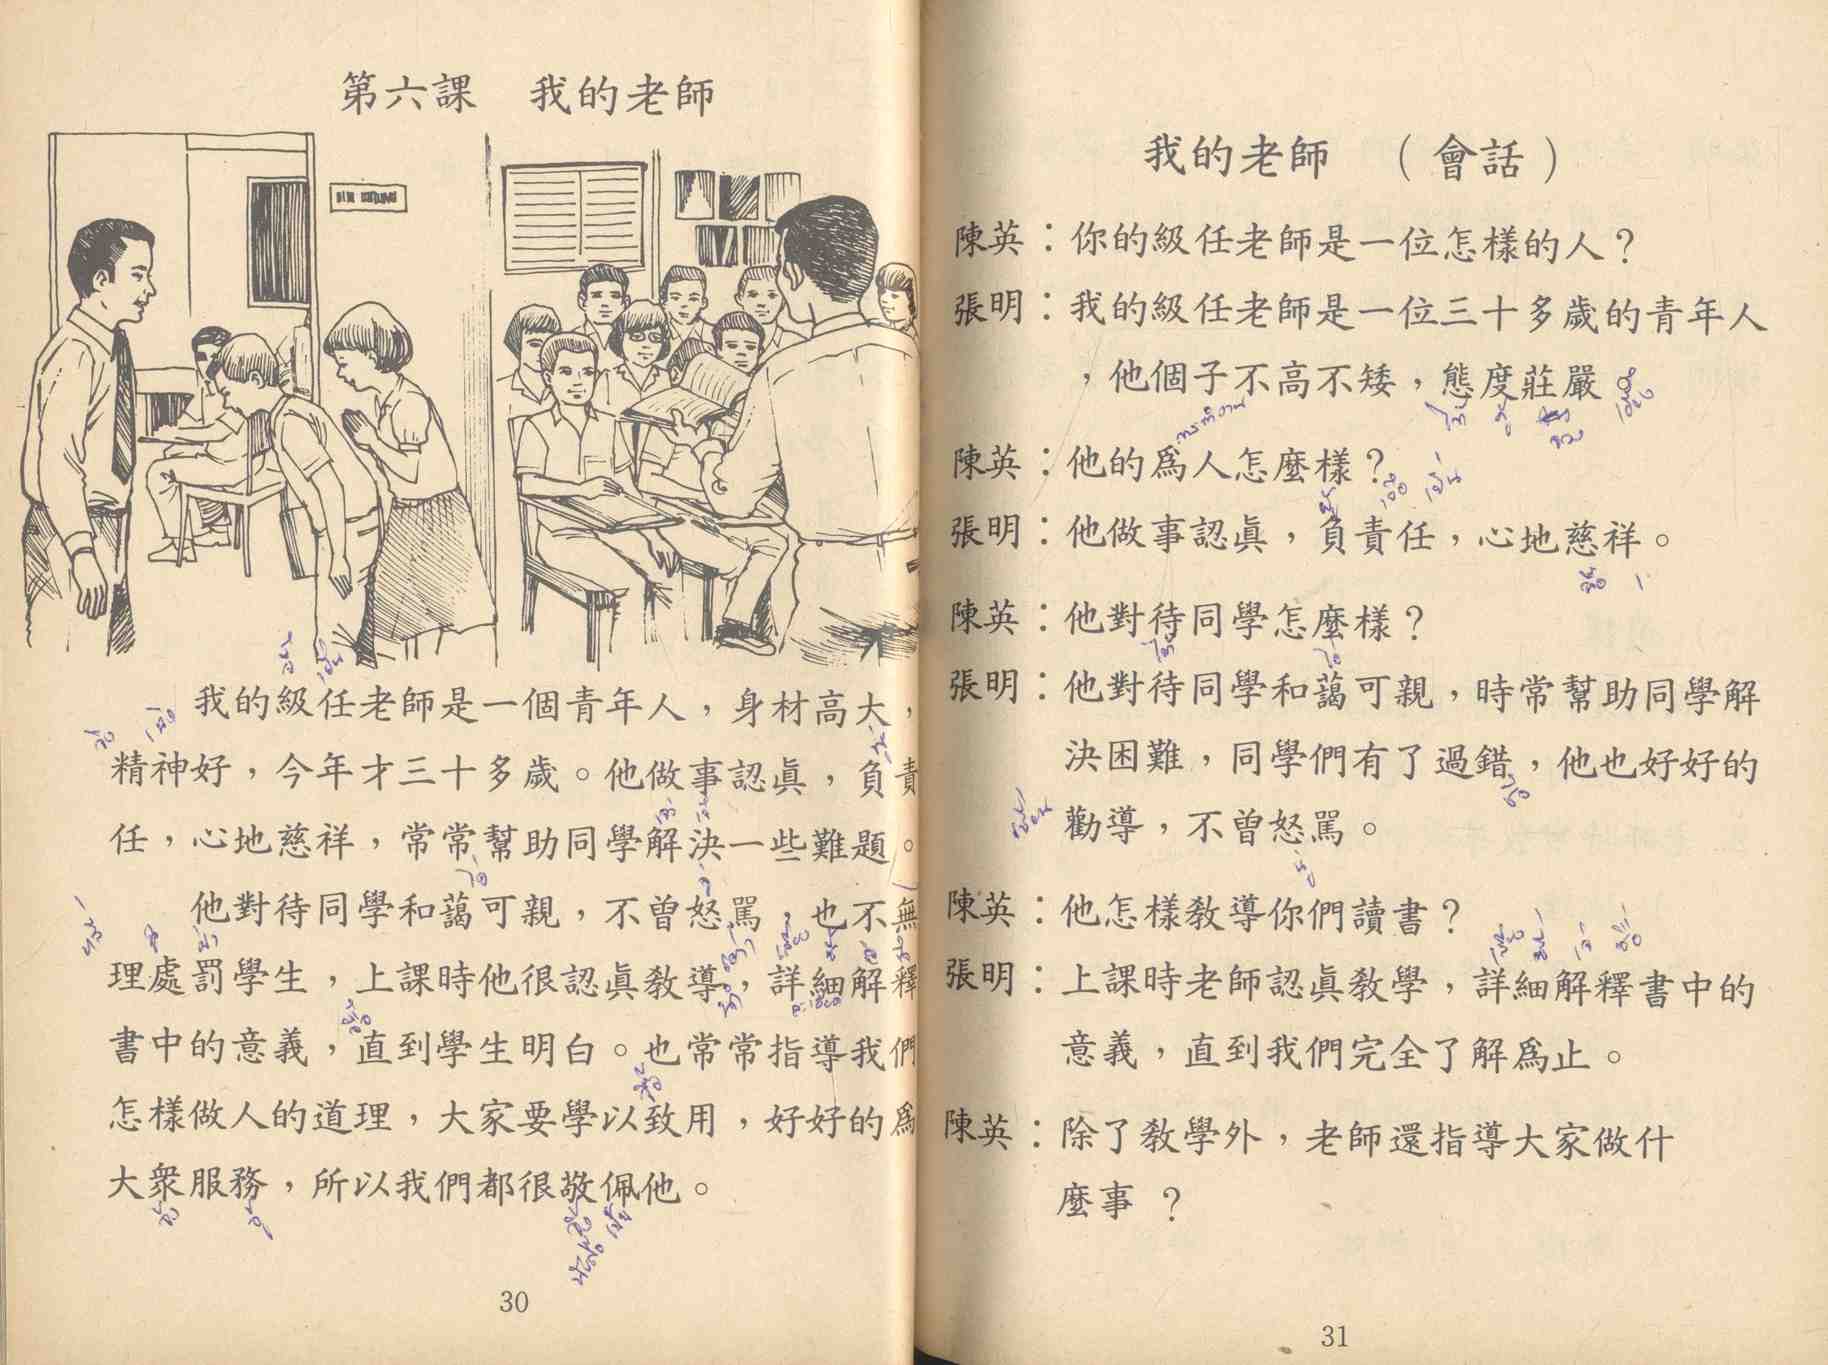 第六課　我的老師
我的級任老師是一個青年人，身材高大，
精神好，今年才三十多歲。他做事認眞，負責
任，心地慈祥，常常幫助同學解決一些難題。
他對待同學和藹可親，不曾怒罵，也不無
理處罰學生，上課時他很認眞敎導，詳細解釋
書中的意義，直到學生明白。也常常指導我們
怎樣做人的道理，大家要學以致用，好好的爲
大衆服務，所以我們都很敬佩他。
30
我的老師　（會話）
陳英：你的級任老師是一位怎樣的人？
張明：我的級任老師是一位三十多歲的青年人
，他個子不高不矮，態度莊嚴
陳英：他的爲人怎麼樣？
張明：他做事認眞，負責任，心地慈祥。
陳英：他對待同學怎麼樣？
張明：他對待同學和藹可親，時常幫助同學解
決困難，同學們有了過錯，他也好好的
勸導，不曾怒罵。
陳英：他怎樣敎導你們讀書？
張明：上課時老師認眞敎學，詳細解釋書中的
意義，直到我們完全了解爲止。
陳英：除了敎學外，老師還指導大家做什
麼事？
31